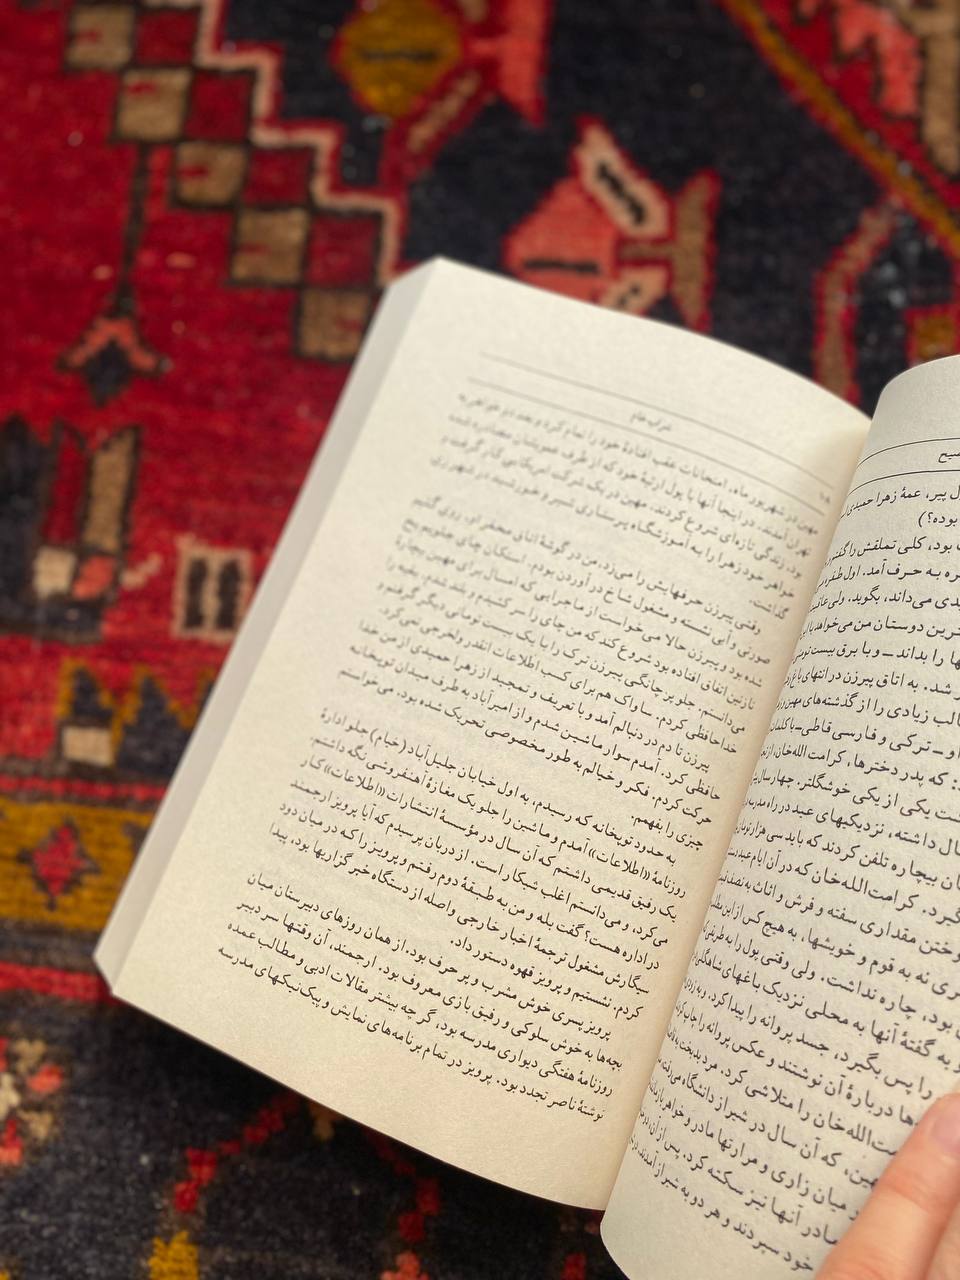 شراب خام
۱۸
مهین در شهریور ماه، امتحانات عقب افتادهٔ خود را تمام کرد و بعد دو خواهر به
تهران آمدند. در اینجا آنها با پول ارثیهٔ خود که از طرف عمویشان مصادره شده
بود، زندگی تازه‌ای شروع کردند. مهین در یک شرکت امریکایی کار گرفت و
خواهر خود زهرا را به آموزشگاه پرستاری شیر و خورشید در شهر ری
گذاشت.
وقتی پیرزن حرفهایش را می‌زد، من در گوشهٔ اتاق محقر او، روی گلیم
صورتی و آبی نشسته و مشغول شاخ در آوردن بودم. استکان چای جلویم یخ
شده بود و پیرزن حالا می‌خواست از ماجرایی که امسال برای مهین بیچارهٔ
نازنین اتفاق افتاده بود شروع کند که من چای را سر کشیدم و بلند شدم. بقیه را
می‌دانستم. جلو پرچانگی پیرزن ترک را با یک بیست تومانی دیگر گرفتم و
خداحافظی کردم. ساواک هم برای کسب اطلاعات انقدر ولخرجی نمی‌کرد.
پیرزن تا دم در دنبالم آمد و با تعریف و تمجید از زهرا حمیدی از من خدا
حافظی کرد. آمدم سوار ماشین شدم و از امیرآباد به طرف میدان توپخانه
حرکت کردم. فکر و خیالم به طور مخصوصی تحریک شده بود. می‌خواستم
چیزی را بفهمم.
به حدود توپخانه که رسیدم، به اول خیابان جلیل‌آباد (خیام) جلو ادارهٔ
روزنامهٔ «اطلاعات» آمدم و ماشین را جلو یک مغازهٔ آهنفروشی نگه داشتم.
یک رفیق قدیمی داشتم که آن سال در مؤسسهٔ انتشارات «اطلاعات» کار
می‌کرد، و می‌دانستم اغلب شبکار است. از دربان پرسیدم که آیا پرویز ارجمند
در اداره هست؟ گفت بله و من به طبقهٔ دوم رفتم و پرویز را که در میان دود
سیگارش مشغول ترجمهٔ اخبار خارجی واصله از دستگاه خبرگزاریها بود، پیدا
کردم. نشستیم و پرویز قهوه دستور داد.
پرویز پسری خوش مشرب و پر حرف بود. از همان روزهای دبیرستان میان
بچه‌ها به خوش سلوکی و رفیق بازی معروف بود. ارجمند، آن وقتها سر دبیر
روزنامهٔ هفتگی دیواری مدرسه بود، گر چه بیشتر مقالات ادبی و مطالب عمده
نوشتهٔ ناصر تجدد بود. پرویز در تمام برنامه‌های نمایش و پیک‌نیکهای مدرسه
ل پیر، عمهٔ زهرا حمیدی
بوده؟)
بود، کلی تملقش را
به حرف آمد. اول
می‌داند، بگوید. ولی
دوستان من می‌خواهد
را بداند ــ و با برق بیست
شد. به اتاق پیرزن در انتهای باغ
زیادی را از گذشته‌های مهین
او ــ ترکی و فارسی قاطی ــ
که پدر دخترها، کرامت الله‌خان،
یکی از یکی خوشگلتر. چهار سال
داشته، نزدیکیهای عید در راه مدرسه
بیچاره تلفن کردند که باید سی هزار تومان
کرامت‌الله‌خان که در آن ایام عید
مقداری سفته و فرش و اثاث به
نه به قوم و خویشها، به هیچ کس از این
بود، چاره نداشت. ولی وقتی پول را به
به گفتهٔ آنها به محلی نزدیک باغهای
را پس بگیرد، جسد پروانه را پیدا کرد.
ها دربارهٔ آن نوشتند و عکس پروانه را چاپ
الله‌خان را متلاشی کرد. مرد بدبخت
که آن سال در شیراز دانشگاه می‌رفت
میان زاری و مرارتها مادر و خواهر
مادر آنها نیز سکته کرد. پس از آن،
خود سپردند و هر دو به شیراز آمدند.